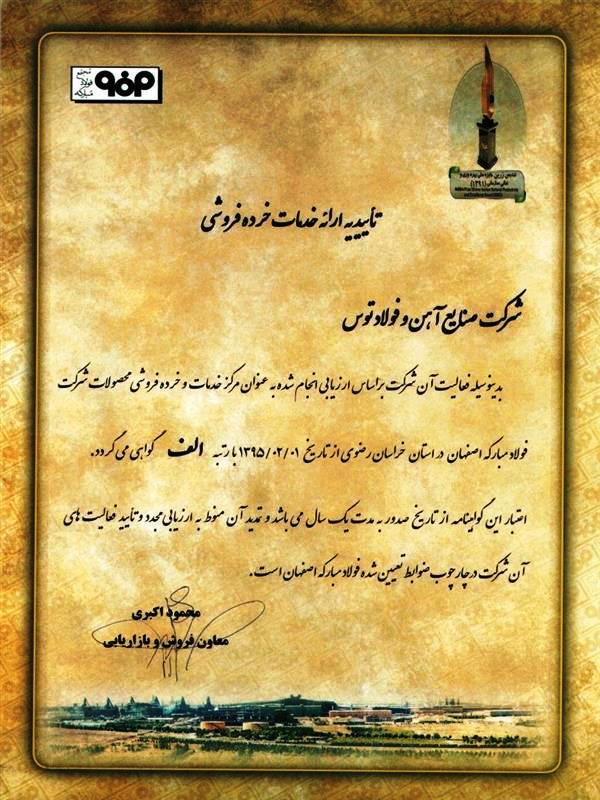 مجتمع
فولاد
مبارکه
تندیس زرین جایزه ملی بهره وری و
تعالی سازمانی (۱۳۹۱)
تأییدیه ارائه خدمات خرده فروشی
شرکت صنایع آهن و فولاد توس
بدینوسیله فعالیت آن شرکت براساس ارزیابی انجام شده به عنوان مرکز خدمات و خرده فروشی محصولات شرکت
فولاد مبارکه اصفهان در استان خراسان رضوی از تاریخ ۱۳۹۵/۰۲/۰۱ با رتبه الف گواهی می گردد.
اعتبار این گواهینامه از تاریخ صدور به مدت یک سال می باشد و تمدید آن منوط به ارزیابی مجدد و تأیید فعالیت های
آن شرکت در چارچوب ضوابط تعیین شده فولاد مبارکه اصفهان است.
محمود اکبری
معاون فروش و بازاریابی